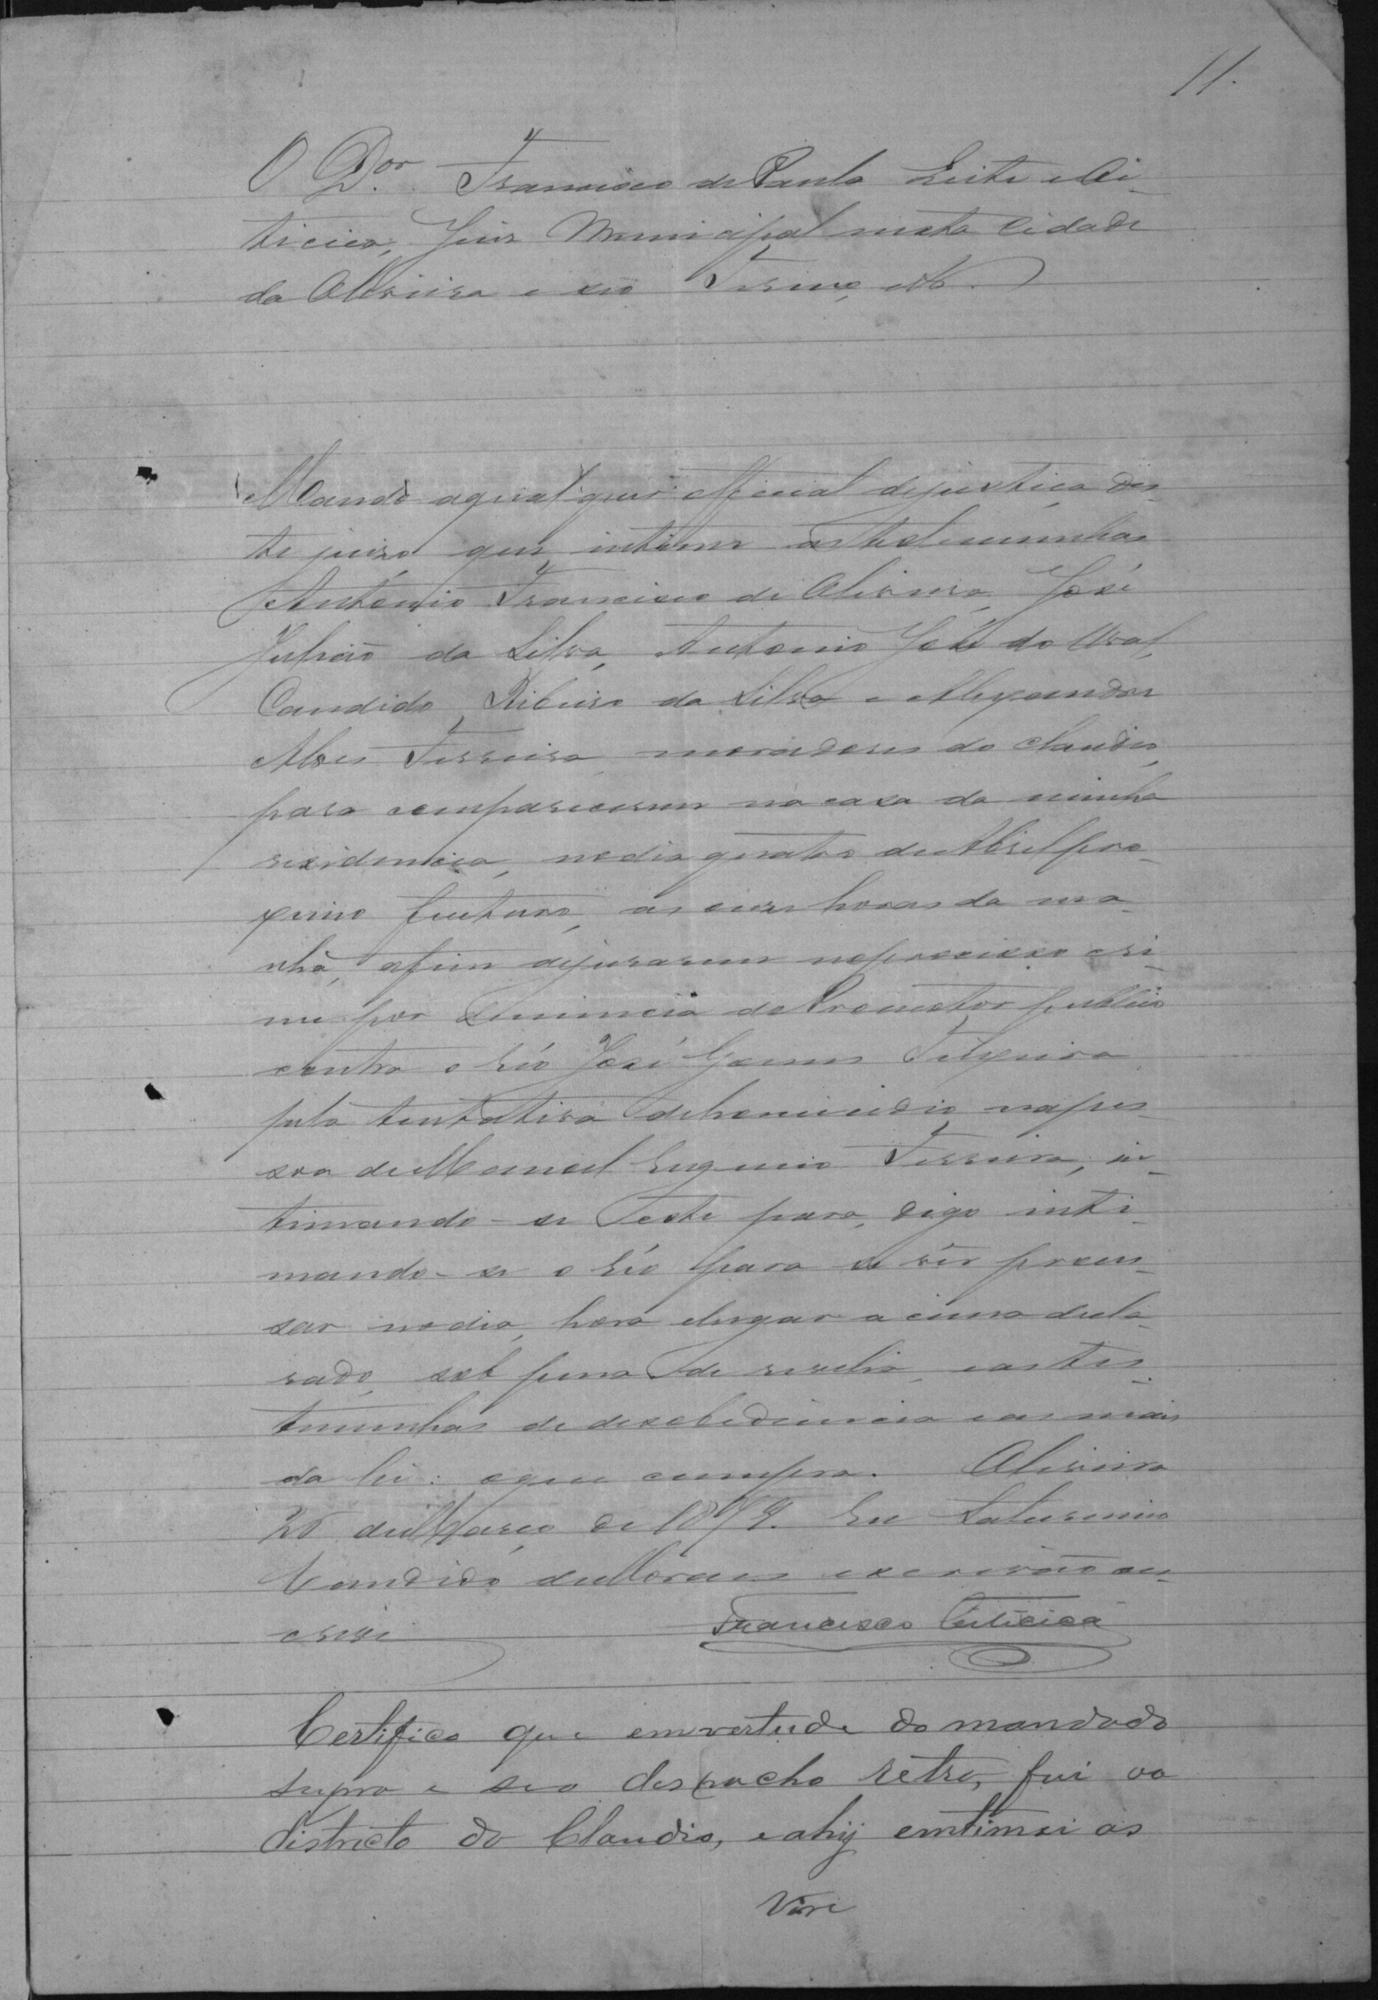 11.
O D.or Francisco de Paula Leite e Oi-
ticica, Juiz Municipal nesta Cidade
da Oliveira e seo Termo, etc.
Mando aqualquer official dejustiça des-
te juizo que intime as testimunhas
Antonio Francisco de Oliveira, José
Julião da Silva, Antonio José do
Candido Ribeiro da Silva e Alexandre
Alves Ferreira, moradores do Claudio,
para comparecerem na casa da minha
residencia, nodia quatro de Abril pro-
ximo futuro, as onze horas da ma-
nhã, afim dejurarem noprocesso cri-
me por denuncia do Promotor publico
contra o réo José Gomes Teixeira
pela tentativa dehomicidio napes-
soa de Manoel Eugenio Ferreira, in-
timando-se este para, digo inti-
mando-se o réo para se vêr proces-
sar nodia, hora elugar acima decla-
rado, sob pena de revelia, eastes-
timunhas de desobediencia easmais
da lei: oque cumpra. Oliveira
de Março de 1879. Eu Saturnino
Candido de Moraes escrivão oes-
crevi
Francisco Oiticica
Certifico que emvertude do mandado
supra e seo despacho retro, fui ao
districto do Claudio, eahij emtimei as